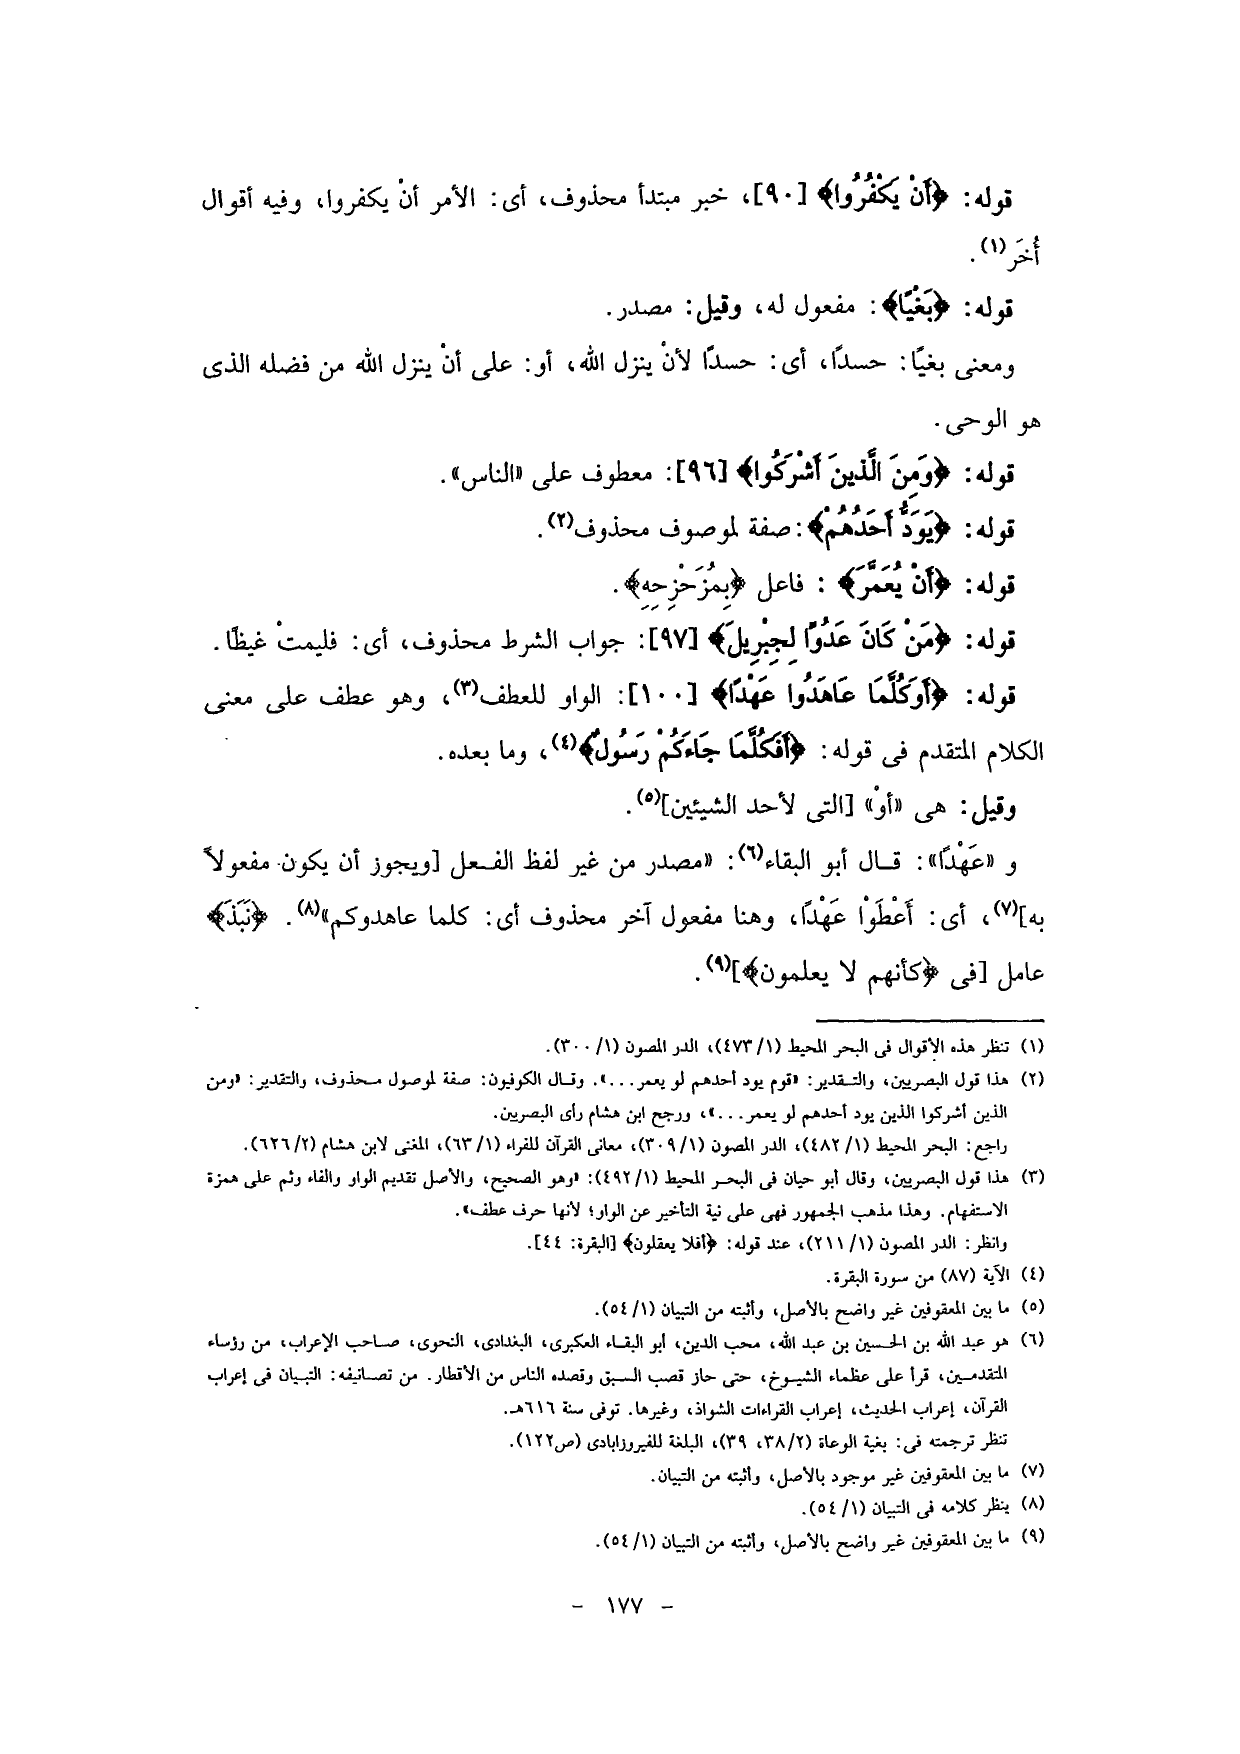 قوله: ﴿أَنْ يَكْفُرُوا﴾ [٩٠]، خبر مبتدأ محذوف، أى: الأمر أنْ يكفروا، وفيه أقوال
أُخَر(١).
قوله: ﴿بَغْيًا﴾: مفعول له، وقيل: مصدر.
ومعنى بغيًا: حسدًا، أى: حسدًا لأنْ ينزل الله، أو: على أنْ ينزل الله من فضله الذى
هو الوحى.
قوله: ﴿وَمِنَ الَّذينَ أَشْرَكُوا﴾ [٩٦]: معطوف على «الناس».
قوله: ﴿يَوَدُّ أَحَدُهُمْ﴾: صفة لموصوف محذوف(٢).
قوله: ﴿أَنْ يُعَمَّرَ﴾ : فاعل ﴿بِمُزَحْزِحِهِ﴾.
قوله: ﴿مَنْ كَانَ عَدُوًا لِجِبْرِيلَ﴾ [٩٧]: جواب الشرط محذوف، أى: فليمتْ غيظًا.
قوله: ﴿أَوَكُلَّمَا عَاهَدُوا عَهْدًا﴾ [١٠٠]: الواو للعطف(٣)، وهو عطف على معنى
الكلام المتقدم فى قوله: ﴿أَفَكُلَّمَا جَاءَكُمْ رَسُولٌ﴾(٤)، وما بعده.
وقيل: هى «أوْ» [التى لأحد الشيئين](٥).
و «عَهْدًا»: قـال أبو البقاء(٦): «مصدر من غير لفظ الفـعل [ويجوز أن يكون مفعولاً
به](٧)، أى: أَعْطَوْا عَهْدًا، وهنا مفعول آخر محذوف أى: كلما عاهدوكم»(٨). ﴿نَبَذَ﴾
عامل [فى ﴿كأنهم لا يعلمون﴾](٩).
(١) تنظر هذه الأقوال فى البحر المحيط (١/ ٤٧٣)، الدر المصون (١/ ٣٠٠).
(٢) هذا قول البصريين، والتـقدير: «قوم يود أحدهم لو يعمر...». وقـال الكوفيون: صفة لموصول محذوف، والتقدير: «ومن
الذين أشركوا الذين يود أحدهم لو يعمر...»، ورجح ابن هشام رأى البصريين.
راجع: البحر المحيط (١/ ٤٨٢)، الدر المصون (١/ ٣٠٩)، معانى القرآن للفراء (١/ ٦٣)، المغنى لابن هشام (٢/ ٦٢٦).
(٣) هذا قول البصريين، وقال أبو حيان فى البحـر المحيط (١/ ٤٩٢): «وهو الصحيح، والأصل تقديم الواو والفاء وثم على همزة
الاستفهام. وهذا مذهب الجمهور فهى على نية التأخير عن الواو؛ لأنها حرف عطف».
وانظر: الدر المصون (١/ ٢١١)، عند قوله: ﴿أفلا يعقلون﴾ [البقرة: ٤٤].
(٤) الآية (٨٧) من سورة البقرة.
(٥) ما بين المعقوفين غير واضح بالأصل، وأثبته من التبيان (١/ ٥٤).
(٦) هو عبد الله بن الحـسين بن عبد الله، محب الدين، أبو البقـاء العكبرى، البغدادى، النحوى، صـاحب الإعراب، من رؤساء
المتقدمـين، قرأ على عظماء الشيـوخ، حتى حاز قصب السـبق وقصده الناس من الأقطار. من تصـانيفه: التـبيان فى إعراب
القرآن، إعراب الحديث، إعراب القراءات الشواذ، وغيرها. توفى سنة ٦١٦هـ.
تنظر ترجمته فى: بغية الوعاة (٢/ ٣٨، ٣٩)، البلغة للفيروزابادى (ص١٢٢).
(٧) ما بين المعقوفين غير موجود بالأصل، وأثبته من التبيان.
(٨) ينظر كلامه فى التبيان (١/ ٥٤).
(٩) ما بين المعقوفين غير واضح بالأصل، وأثبته من التبيان (١/ ٥٤).
- ١٧٧ -